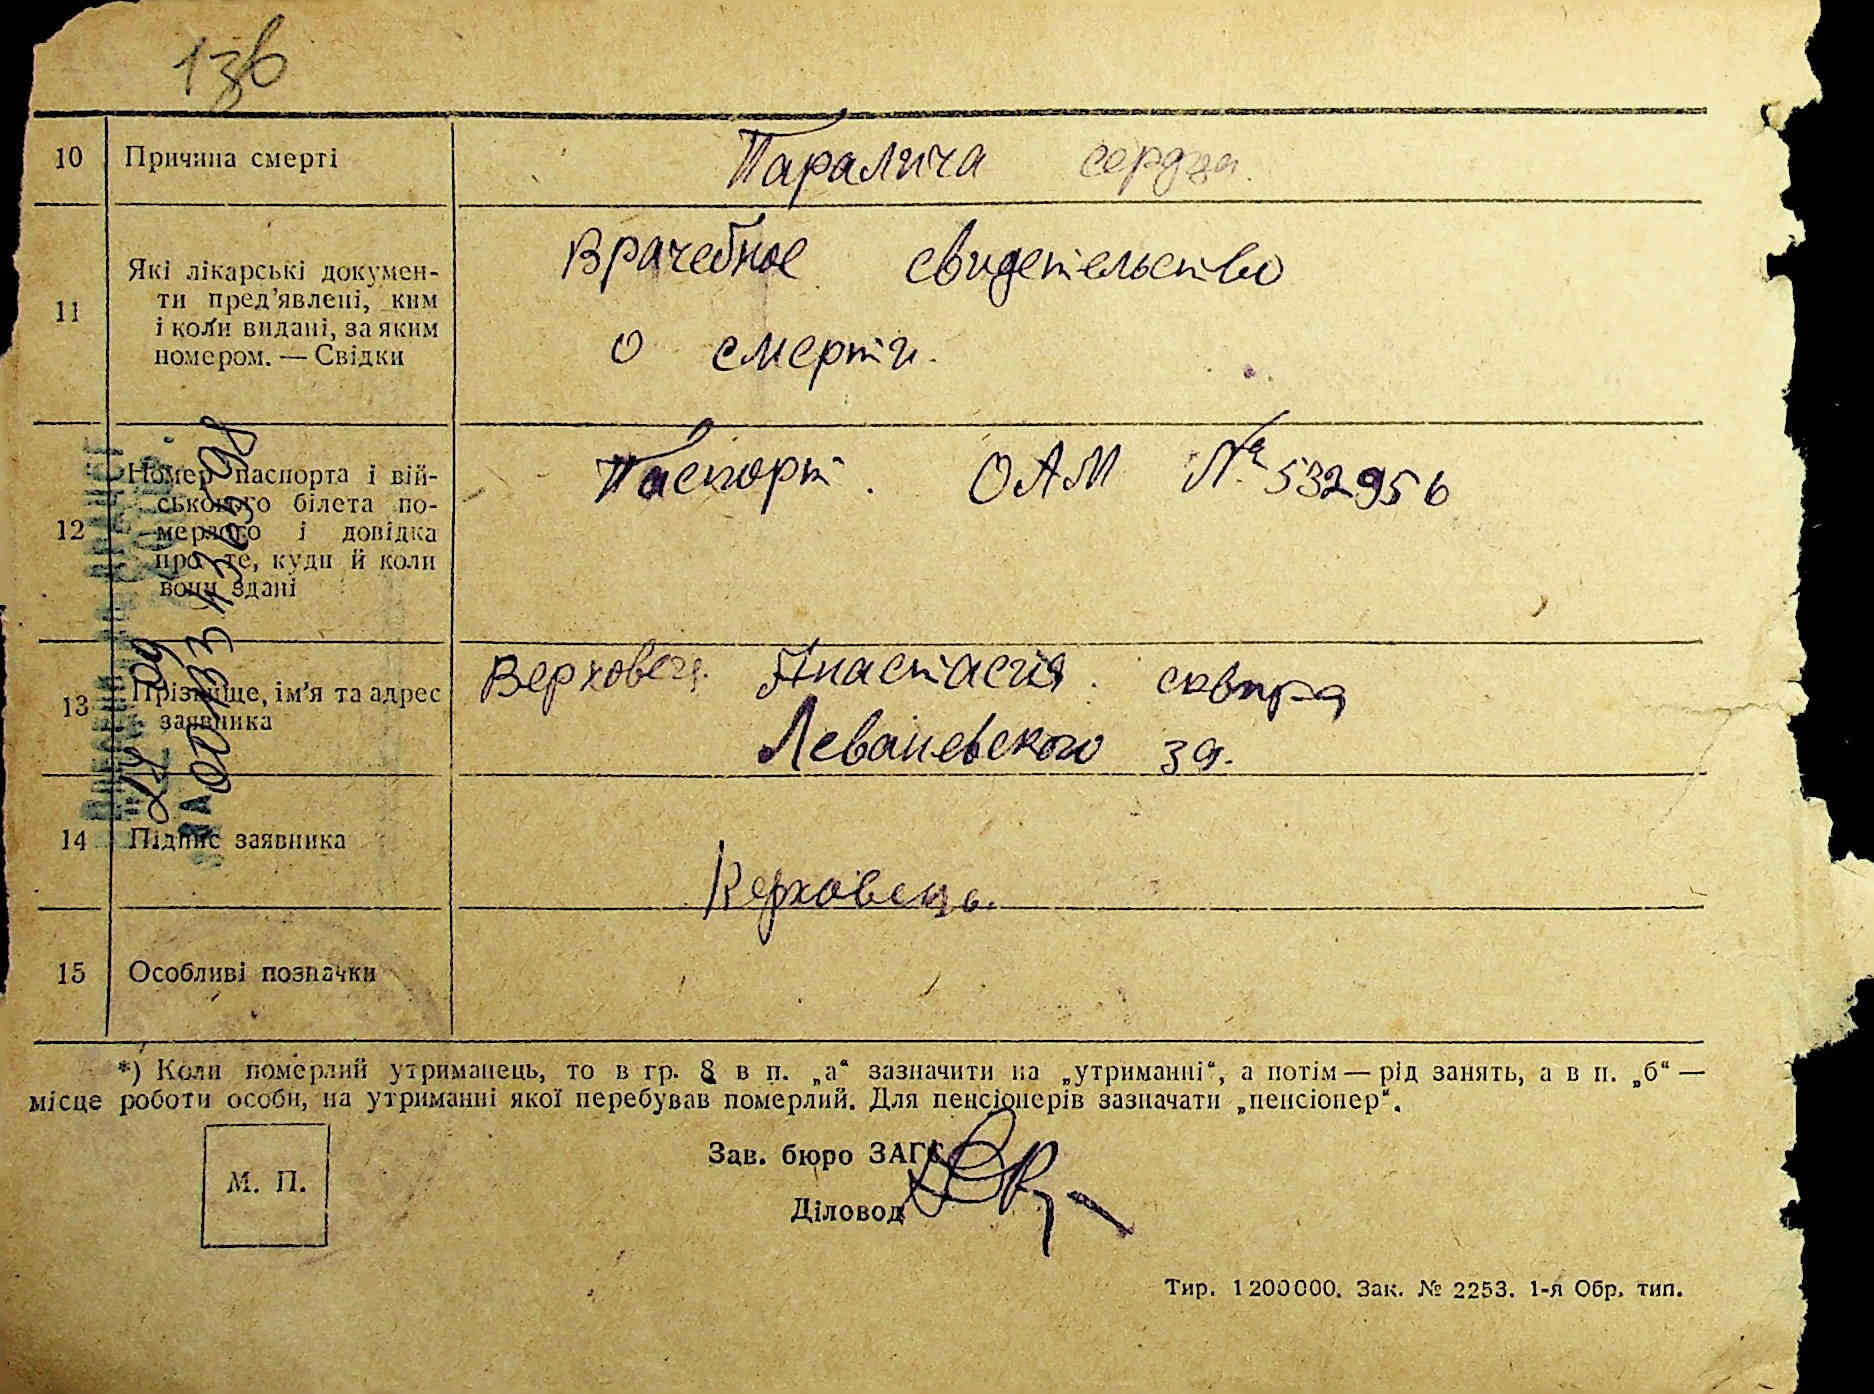 13б
10 Причина смерті Паралича сердца.
11 Які лікарські докумен-
ти пред’явлені, ким
і коли видані, за яким
номером. — Свідки
Врачебное свидетельство
о смерти.
12 Номер паспорта і вій-
ського білета по-
мерлого і довідка
про те, куди й коли
вони здані
Паспорт. ОАМ № 532956
13 Прізвище, ім’я та адрес
заявника
Верховец. Анастасия. сквира
Леваневского 39.
14 Підпис заявника
Верховець.
15 Особливі позначки
*) Коли померлий утриманець, то в гр. 8 в п. „а“ зазначити на „утриманні“, а потім — рід занять, а в п. „б“ —
місце роботи особи, на утриманні якої перебував померлий. Для пенсіонерів зазначати „пенсіонер“.
М. П.
Зав. бюро ЗАГС
Діловод
Тир. 1200000. Зак. № 2253. 1-я Обр. тип.